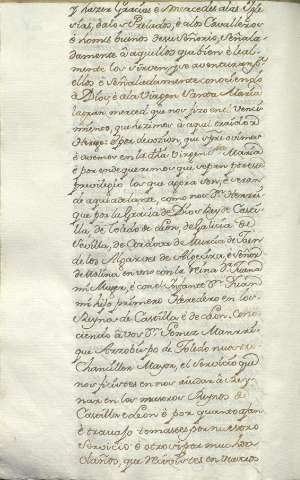 y hazer Gracias è mercedes alas Igle
sias, è alos Prelados, è alos Cavalleros
è homes buenos de su Señorio, señala
damente à aquellos que bien è leal
mente los sirven, que aventuran por
ellos è señaladamente conosciendo
à Dios, è ala Virgen Santa Maria
la gran merced que nos fizo en el venci
miento, que hezimos à aquel traidor
por devozion, que y
è avemos en la dha Virgen Sta Maria
è por ende queremos que sepan por este
privilegio los que agora son, è seran
de aqui adelante, como nos Dn Henrri
que por la Gracia de Dios Rey de Casti
lla, de Toledo de Leon, de Galicia de
Sevilla, de Cordova de Murcia de Jaen
de los Algarves de Algecira, è Señor
de Molina en uno con la Reina Da Juana
mi Muger, è con el Infante Dn Juan
mi hijo primero heredero en los
Reynos de Castilla è de Leon, Cono
ciendo à vos Dn Gomez Manrri
que Arzobispo de Toledo nuestro
Chanciller Mayor, el servicio que
nos ficistes en nos aiudar à Rey
nar en los nuestros Reynos de
Castilla è Leon è por quanto afan
è travajo tomastes por nuestro
servicio è otrosi por muchos
daños, que recivistes en nuestro